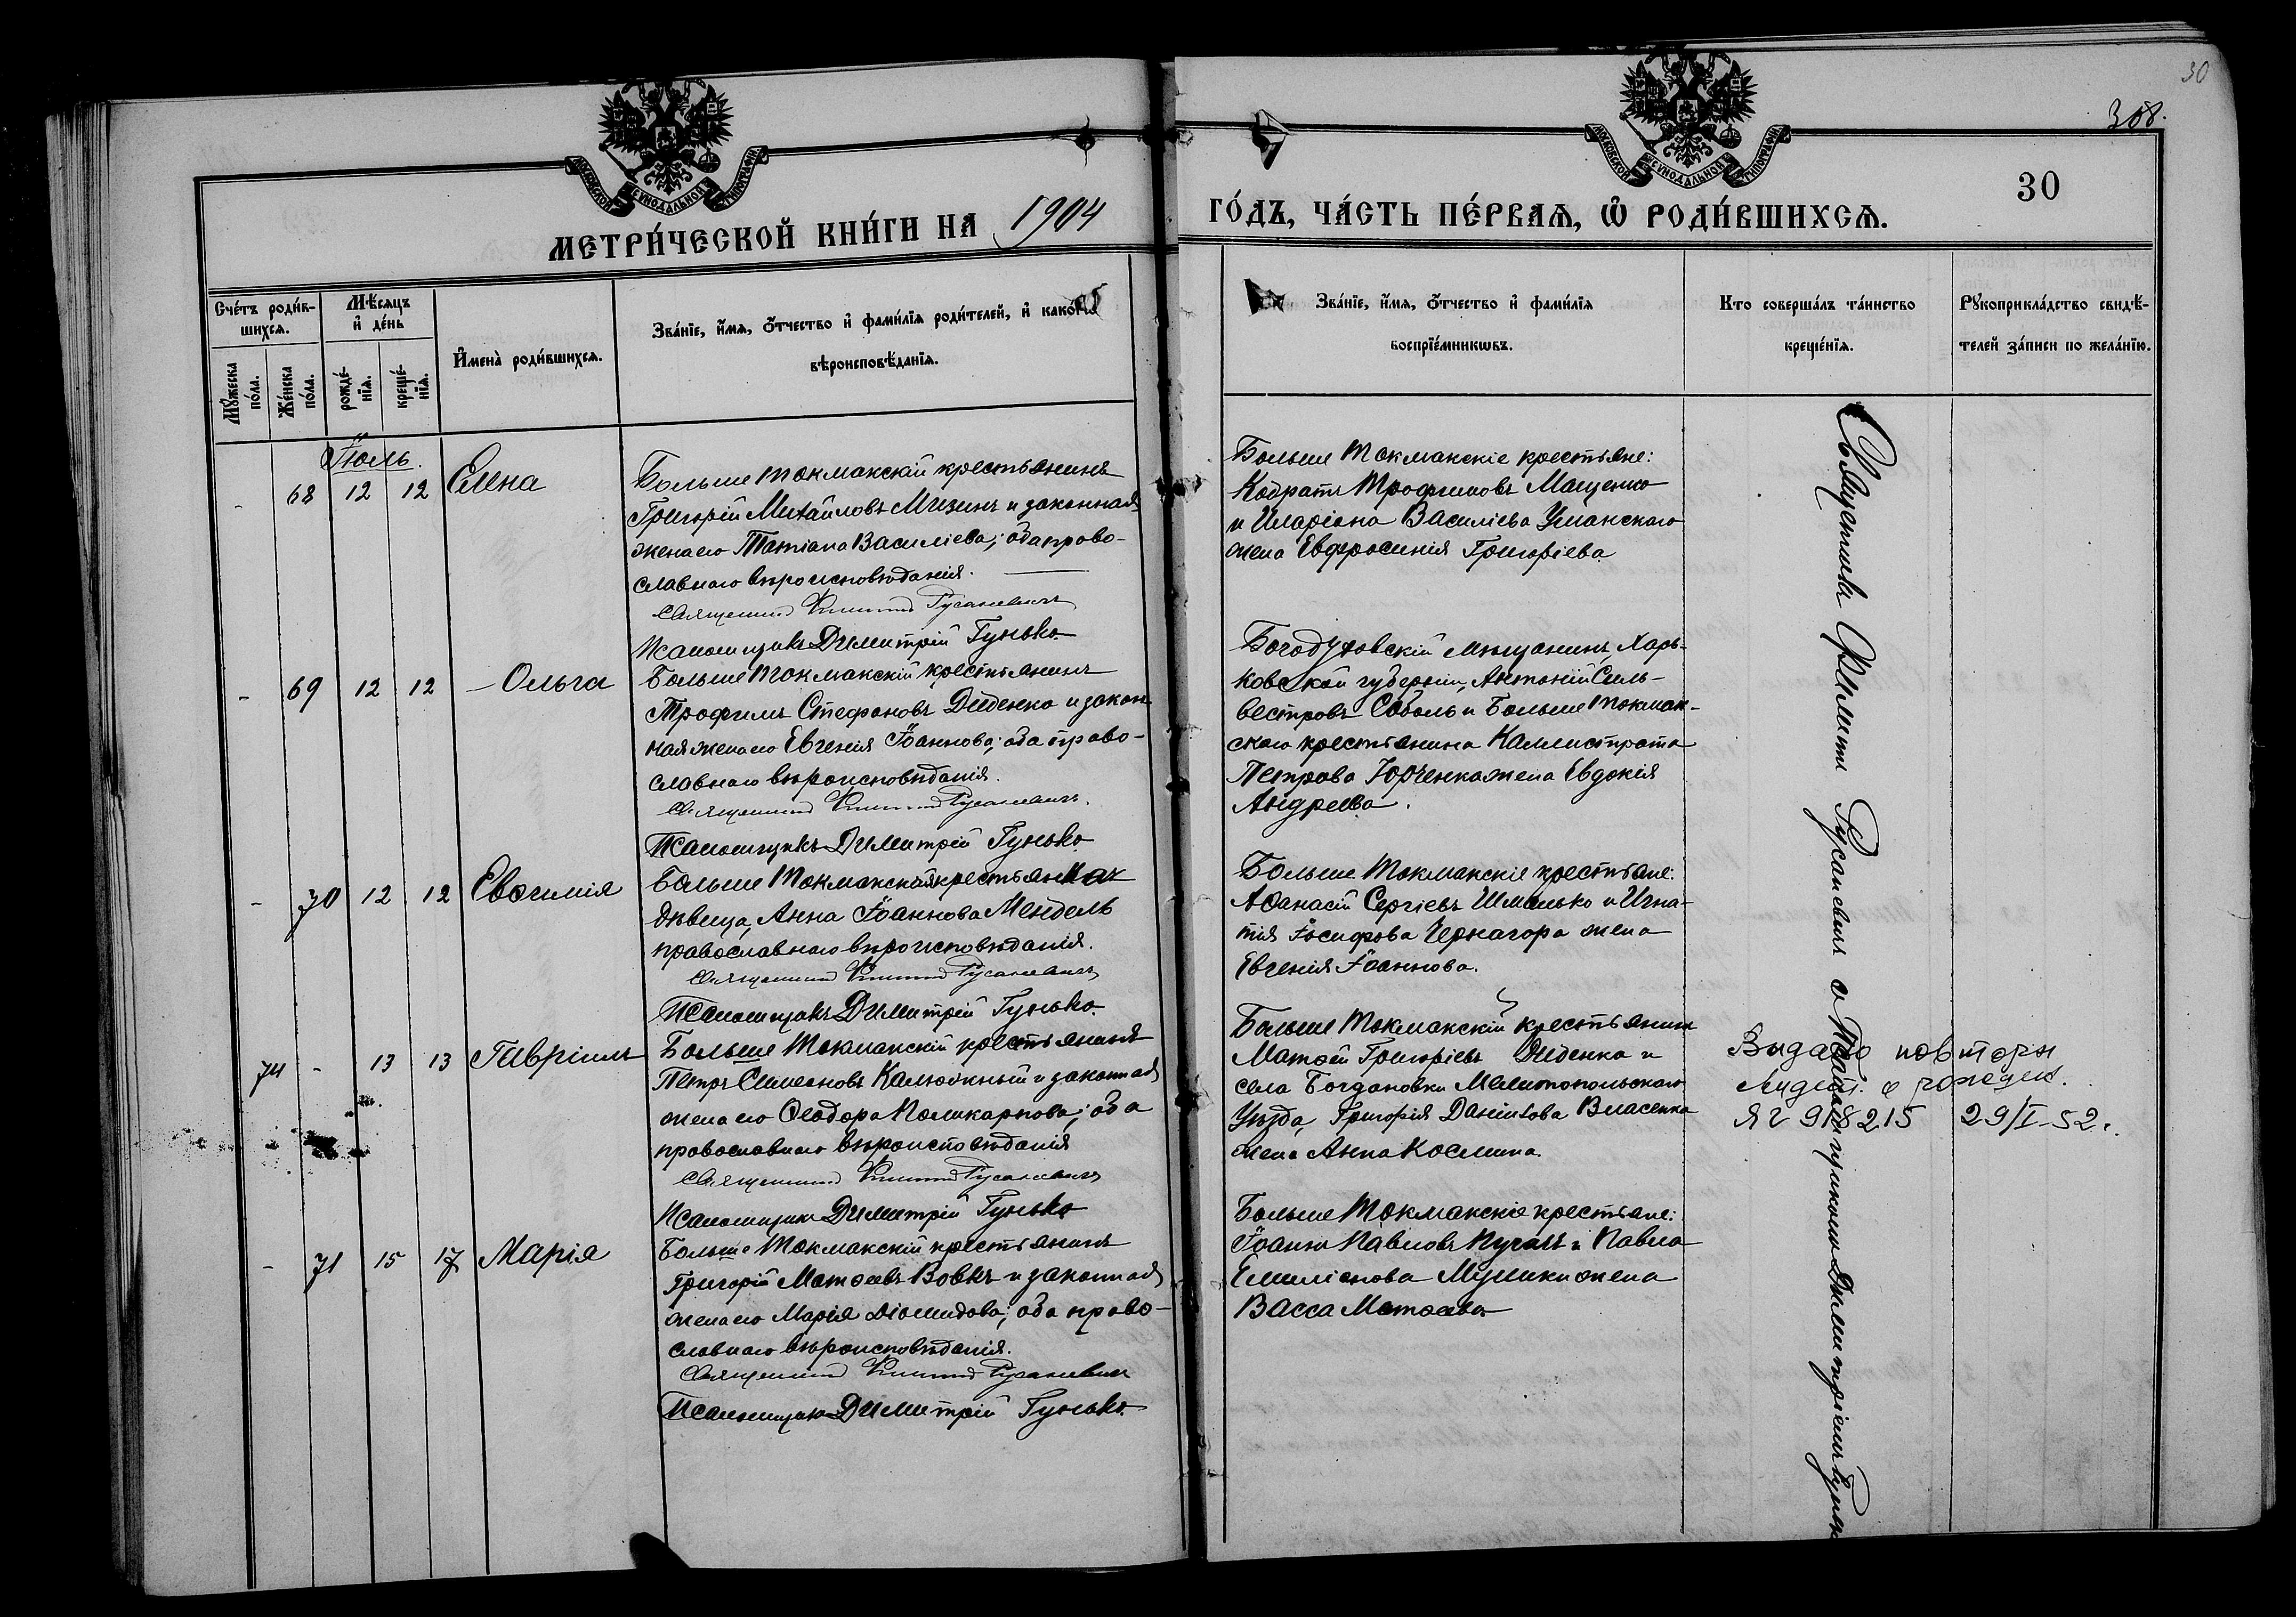 30
308.
МОСКОВСКОЙ СУНОДАЛЬНОЙ ТИПОГРАФІИ
МОСКОВСКОЙ СУНОДАЛЬНОЙ ТИПОГРАФІИ
МЕТРИ́ЧЕСКОЙ КНИ́ГИ НА 1904
ГО́ДЪ, ЧА́СТЬ ПЕ́РВАѦ, Ѡ҆ РОДИ́ВШИХСѦ.
30
Сче́тъ роди́в-
шихсѧ.
Мѣ́сѧцъ
и҆ де́нь
Мꙋ́жеска
по́ла.
Же́нска
по́ла.
рожде́-
нїѧ.
креще́-
нїѧ.
И҆мена̀ роди́вшихсѧ.
Зва́нїе, и҆́мѧ, ѻ҆́тчество и҆ фами́лїѧ роди́телей, и҆ како́гѡ
вѣроисповѣ́данїѧ.
Зва́нїе, и҆́мѧ, ѻ҆́тчество и҆ фами́лїѧ
воспрїе́мникѡвъ.
Кто соверша́лъ та́инство
креще́нїѧ.
Рꙋкоприкла́дство свидѣ́-
телей за́писи по жела́нїю.
Іюль.
- 68 12 12 Елена
Больше Токмакскій крестьянинъ
Григорій Михайловъ Мизинъ и законная
жена его Татіана Василіева; оба право-
славнаго вѣроисповѣданія.
Священникъ Филиппъ Русаневичъ
Псаломщикъ Димитрій Гунько
Больше Токмакскіе крестьяне:
Кодратъ Трофимовъ Мащенко
и Иларіона Василіева Уманскаго
жена Евфросинія Григоріева.
- 69 12 12 - Ольга
Больше Токмакскій крестьянинъ
Трофимъ Стефановъ Диденко и закон
ная жена его Евгенія Іоаннова; оба право-
славнаго вѣроисповѣданія.
Священникъ Филиппъ Русаневичъ.
Псаломщикъ Димитрій Гунько
Богодуховскій мѣщанинъ, Харь-
ковской губерніи, Антоній Силь-
вестровъ Соболь и Больше Токмак-
скаго крестьянина Каллистрата
Петрова Юрченка жена Евдокія
Андреева.
- 70 12 12 Евѳимія
Больше Токмакская крестьянка
дѣвица, Анна Іоаннова Мендель
православнаго вѣроисповѣданія.
Священникъ Филиппъ Русаневичъ
Псаломщикъ Димитрій Гунько.
Больше Токмакскіе крестьяне:
Аѳанасій Сергіевъ Шмалько и Игна-
тія Іосифова Черногора жена
Евгенія Іоаннова.
74 - 13 13 Гавріилъ
Больше Токмакскій крестьянинъ
Петръ Симеоновъ Калюжный и законная
жена его Ѳеодора Поликарпова; оба
православнаго вѣроисповѣданія
Священникъ Филиппъ Русаневичъ
Псаломщикъ Димитрій Гунько
Больше Токмакскій крестьянин
Матѳей Григоріевъ Диденко и
села Богдановки Мелитопольскаго
уѣзда, Григорія Даніилова Власенка
жена Анна Космина.
Видано повторн
свидет. о рожден.
ЯГ 918215 29/I-52.
- 71 15 17 Марія
Больше Токмакскій крестьянинъ
Григорій Матѳеевъ Вовкъ и законная
жена его Марія Діомидова; оба право-
славнаго вѣроисповѣданія.
Священникъ Филиппъ Русаневичъ
Псаломщикъ Димитрій Гунько.
Больше Токмакскіе крестьяне:
Іоаннъ Павловъ Пугачъ и Павла
Емиліанова Мушки жена
Васса Матѳеева.
Священникъ Филиппъ Русаневичъ съ Псаломщикомъ Димитріемъ Гунько